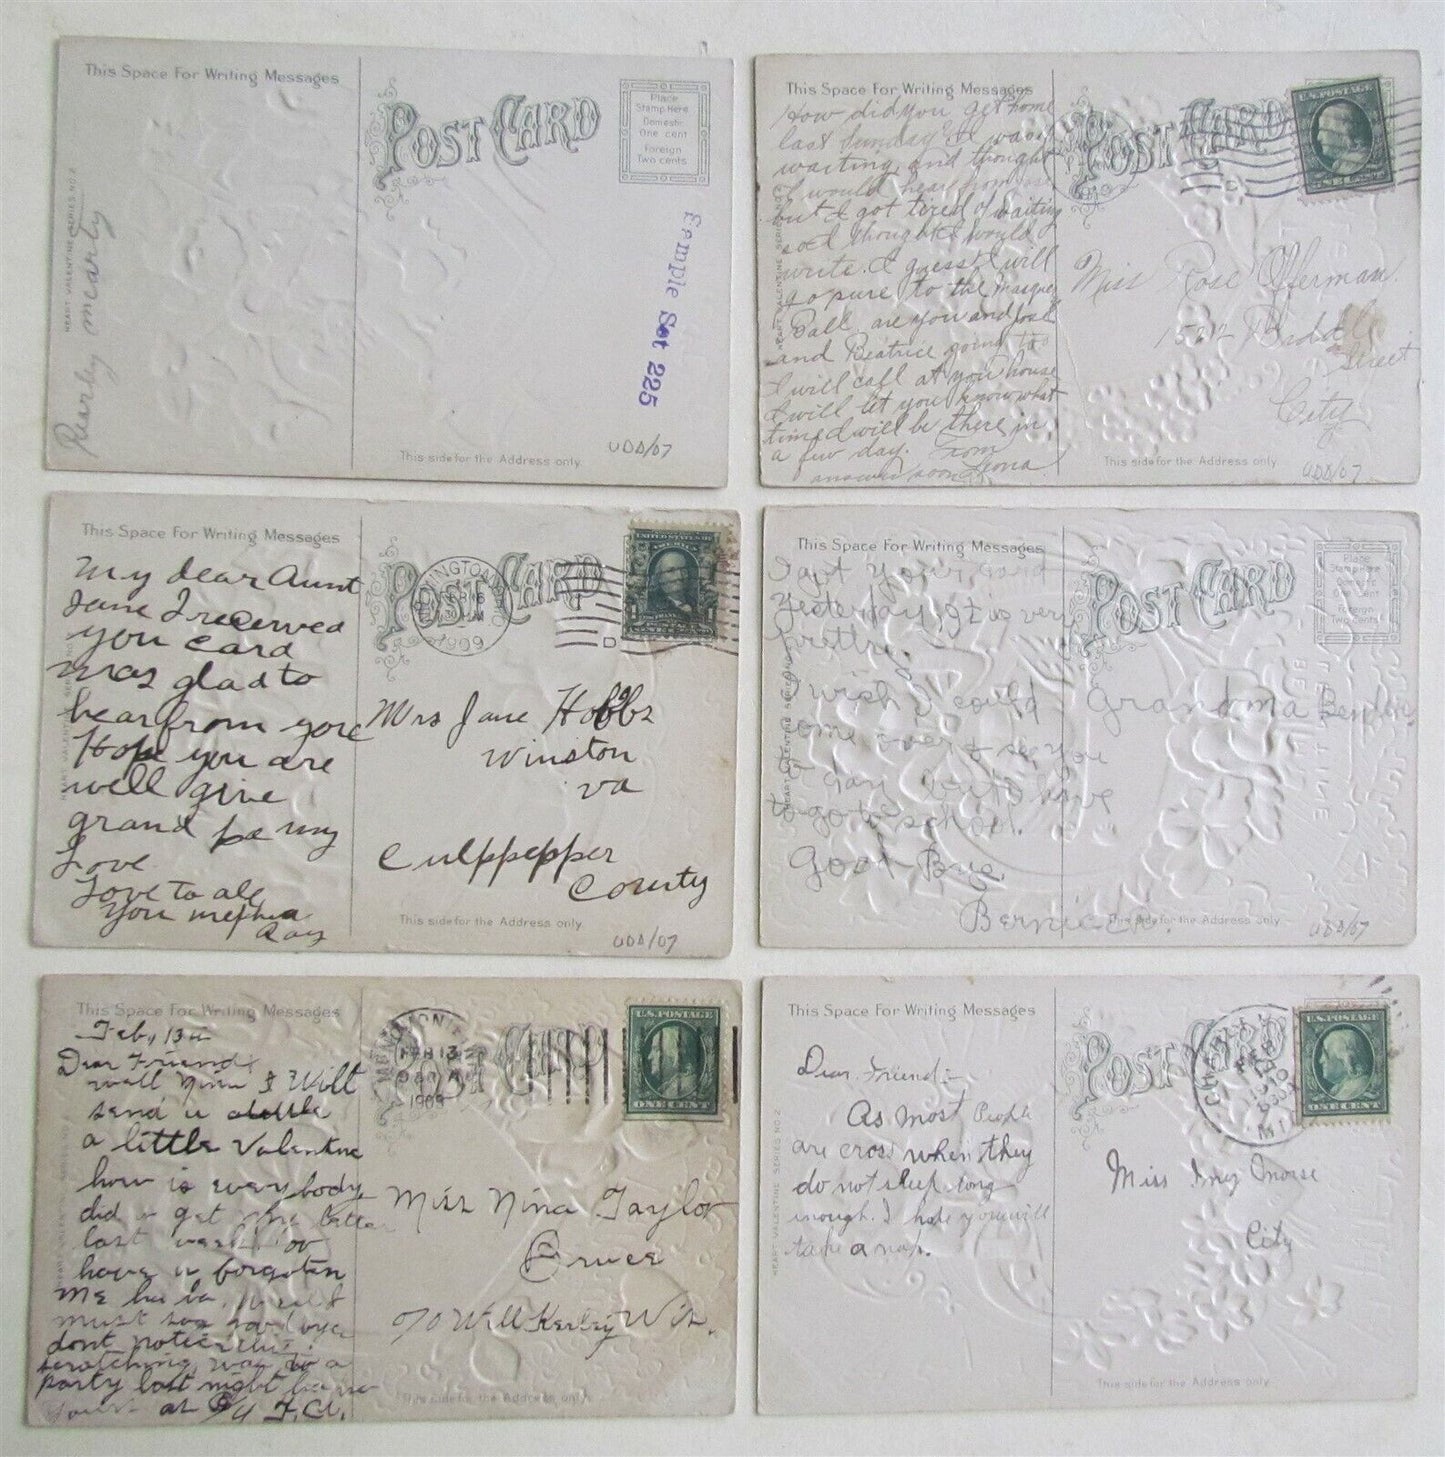 This Space For Writing Messages
POST CARD
Place
Stamp Here
Domestic
One cent
Foreign
Two cents
HEART VALENTINE SERIES NO. 2
Pearly mearly
Sample Set 225
This side for the Address only.
UDB/07
This Space For Writing Messages
POST CARD
U.S. POSTAGE
ONE CENT
How did you get home
last Sunday I was
waiting and thought
I would hear from
but I got tired of waiting
so I thought I would
write. I guess I will
go pure to the masque
Ball are you and
and Beatrice going to
I will call at you house
I will let you know what
time I will be there in
a few day. From
answer soon Leona
HEART VALENTINE SERIES NO. 2
Miss Rose Offerman
1522
Street
City
This side for the Address only.
UDB/07
This Space For Writing Messages
POST CARD
1909
D
My dear Aunt
Jane I recerved
you card
was glad to
hear from yore
Hope you are
well give
grand pa my
Love
Love to all
you nephua
Ray
Mrs Jane Hobbs
Winston
va
Culppepper
County
This side for the Address only.
UDB/07
This Space For Writing Messages
POST CARD
Place
Stamp Here
Domestic
One cent
Foreign
Two cents
I got your card
Yesterday, It is very
pretty.
I wish I could
come over & see you
to day but I have
to go to school.
Good Bye
Bernice
Grandma
This side for the Address only.
UDB/07
This Space For Writing Messages
POST CARD
FEB 13
1909
U.S. POSTAGE
ONE CENT
Feb, 13th
Dear Friend
well Nina I Will
send u alittle
a little Valentine
how is everybody
did u get my letter
last week, or
have u forgoten
me ha ha, well I
must say
dont notice this
scratching, was to a
party last night ha
yours at
Miss Nina Taylor
Bruce
c/o Will Kerley Wis.
This side for the Address only.
This Space For Writing Messages
POST CARD
FEB
U.S. POSTAGE
ONE CENT
Dear Friend:-
As most People
are cross when they
do not sleep long
enough. I hope you will
take a nap.
HEART VALENTINE SERIES NO. 2
Miss
City
This side for the Address only.